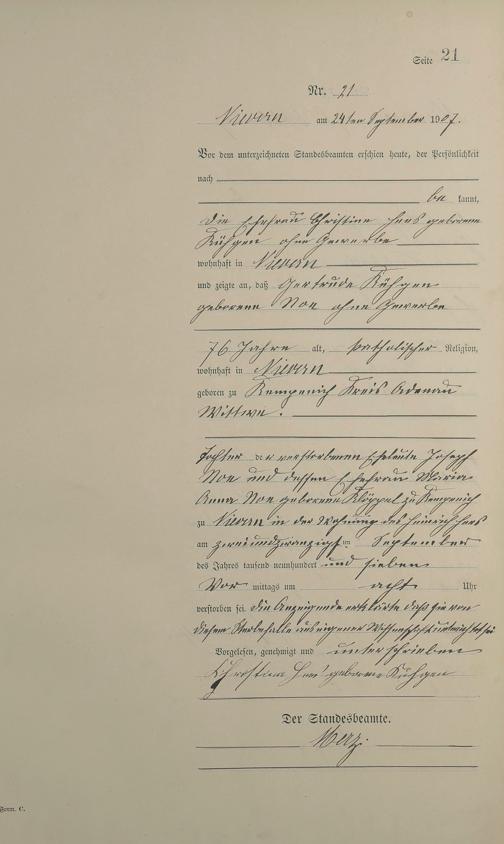 Seite 21
Nr. 21
Nievern am 24ten September 1907.
Vor dem unterzeichneten Standesbeamten erschien heute, der Persönlichkeit
nach
be kannt,
die Ehefrau Christine geborene
Kühgen ohne Gewerbe
wohnhaft in Nievern
und zeigte an, daß Gertrude Kühgen
geborene Noe ohne Gewerbe
76 Jahre alt, katholischer Religion,
wohnhaft in Nievern
geboren zu Kempenich Kreis Adenau
Wittwe.
Tochter der verstorbenen Eheleute Joseph
Noe und dessen Ehefrau Maria
Anna Noe geborene Klöppel zu Kempenich
zu Nievern in der Wohnung des Heinrich
am zweiundzwanzigsten September
des Jahres tausend neunhundert und sieben
Vor mittags um acht Uhr
verstorben sei. die Anzeigende erklärte daß sie von
diesem Sterbefalle aus eigener Wissenschaft unterrichtet sei
Vorgelesen, genehmigt und unterschrieben
geborene Kühgen
Der Standesbeamte.
Merz
Form. C.